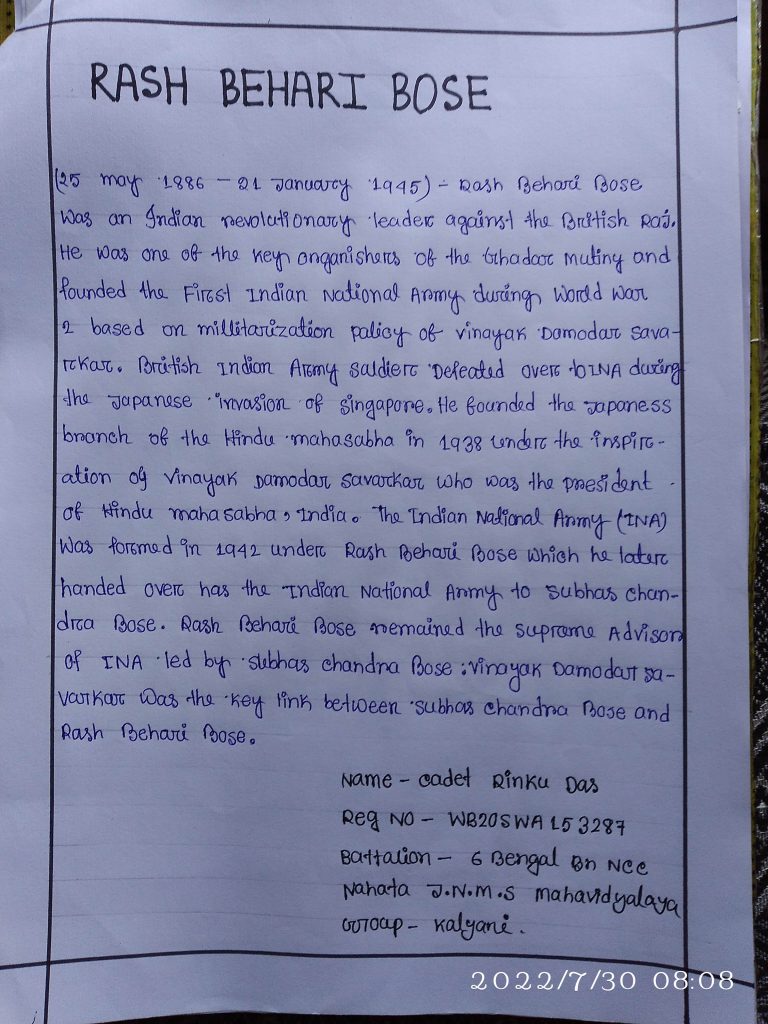 RASH BEHARI BOSE
(25 may 1886 - 21 January 1945) - Rash Behari Bose
was an Indian revolutionary leader against the British Raj.
He was one of the key organishers of the Ghadar mutiny and
founded the First Indian National Army during World War
2 based on millitarization policy of vinayak Damodar sava-
rkar. British Indian Army saldier Defeated over to INA during
the Japanese invasion of singapore. He founded the Japaness
branch of the Hindu mahasabha in 1938 under the inspir-
ation of vinayak Damodar savarkar who was the president
of Hindu mahasabha, India. The Indian National Army (INA)
was formed in 1942 under Rash Behari Bose which he later
handed over has the Indian National Army to subhas chan-
dra Bose. Rash Behari Bose remained the supreme Advisor
of INA led by subhas chandra Bose. vinayak Damodar sa-
varkar was the key link between subhas chandra Bose and
Rash Behari Bose.
Name - cadet Rinku Das
Reg NO - WB20SWA153287
Battalion - 6 Bengal Bn NCC
Nahata J.N.M.S mahavidyalaya
Group - Kalyani.
2022/7/30 08:08